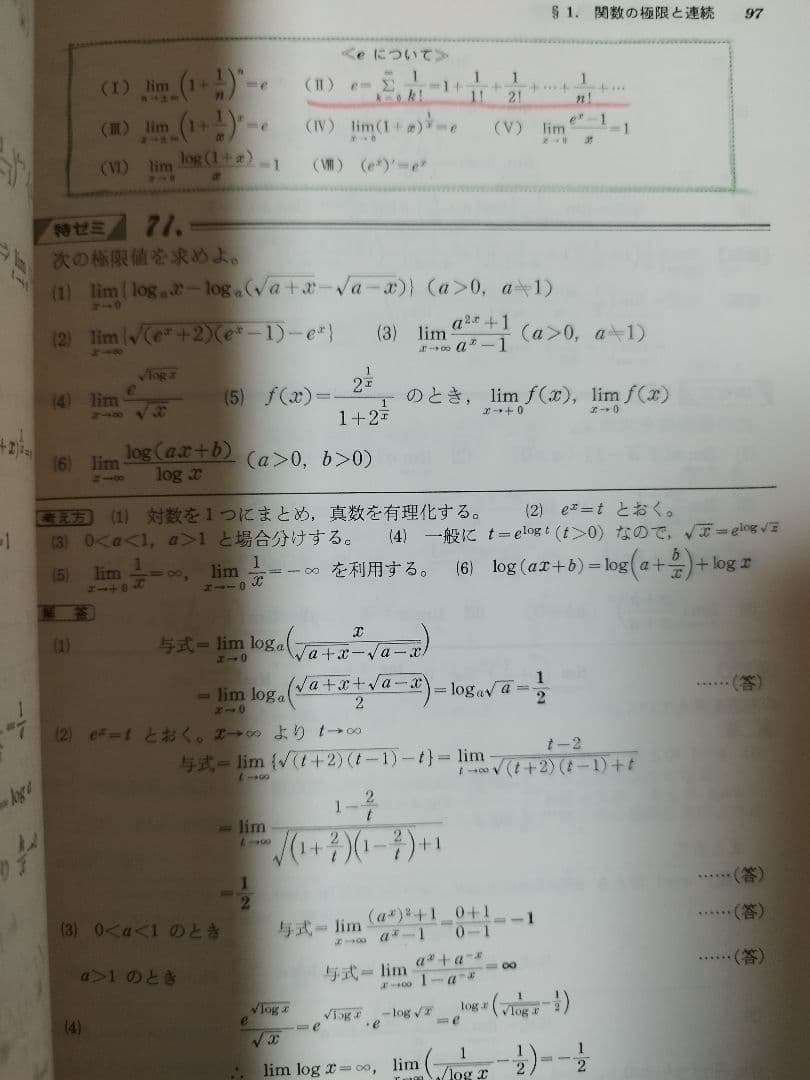 §1. 関数の極限と連続 97
≪e について≫
(Ⅰ) lim_{n→±∞} (1+1/n)^n=e (Ⅱ) e=Σ_{k=0}^{∞} 1/k!=1+1/1!+1/2!+…+1/n!+…
(Ⅲ) lim_{x→±∞} (1+1/x)^x=e (Ⅳ) lim_{x→0}(1+x)^{1/x}=e (Ⅴ) lim_{x→0} (e^x−1)/x=1
(Ⅵ) lim_{x→0} log(1+x)/x=1 (Ⅷ) (e^x)'=e^x
特ゼミ 71.
次の極限値を求めよ。
(1) lim_{x→0}{log_a x−log_a(√(a+x)−√(a−x))} (a>0, a≒1)
(2) lim_{x→∞}{√((e^x+2)(e^x−1))−e^x} (3) lim_{x→∞} (a^{2x}+1)/(a^x−1) (a>0, a≒1)
(4) lim_{x→∞} e^{√(log x)}/√x (5) f(x)=2^{1/x}/(1+2^{1/x}) のとき, lim_{x→+0} f(x), lim_{x→0} f(x)
(6) lim_{x→∞} log(ax+b)/log x (a>0, b>0)
考え方 (1) 対数を1つにまとめ, 真数を有理化する。 (2) e^x=t とおく。
(3) 0<a<1, a>1 と場合分けする。 (4) 一般に t=e^{log t} (t>0) なので, √x=e^{log √x}
(5) lim_{x→+0} 1/x=∞, lim_{x→−0} 1/x=−∞ を利用する。 (6) log(ax+b)=log(a+b/x)+log x
解答
(1) 与式=lim_{x→0} log_a(x/(√(a+x)−√(a−x)))
=lim_{x→0} log_a((√(a+x)+√(a−x))/2)=log_a√a=1/2 ……(答)
(2) e^x=t とおく。x→∞ より t→∞
与式=lim_{t→∞}{√((t+2)(t−1))−t}=lim_{t→∞} (t−2)/(√((t+2)(t−1))+t)
=lim_{t→∞} (1−2/t)/(√((1+2/t)(1−2/t))+1)
=1/2 ……(答)
(3) 0<a<1 のとき 与式=lim_{x→∞} ((a^x)^2+1)/(a^x−1)=(0+1)/(0−1)=−1 ……(答)
a>1 のとき 与式=lim_{x→∞} (a^x+a^{−x})/(1−a^{−x})=∞ ……(答)
(4) e^{√(log x)}/√x=e^{√(log x)}·e^{−log √x}=e^{log x(1/√(log x)−1/2)}
∴ lim log x=∞, lim(1/√(log x)−1/2)=−1/2